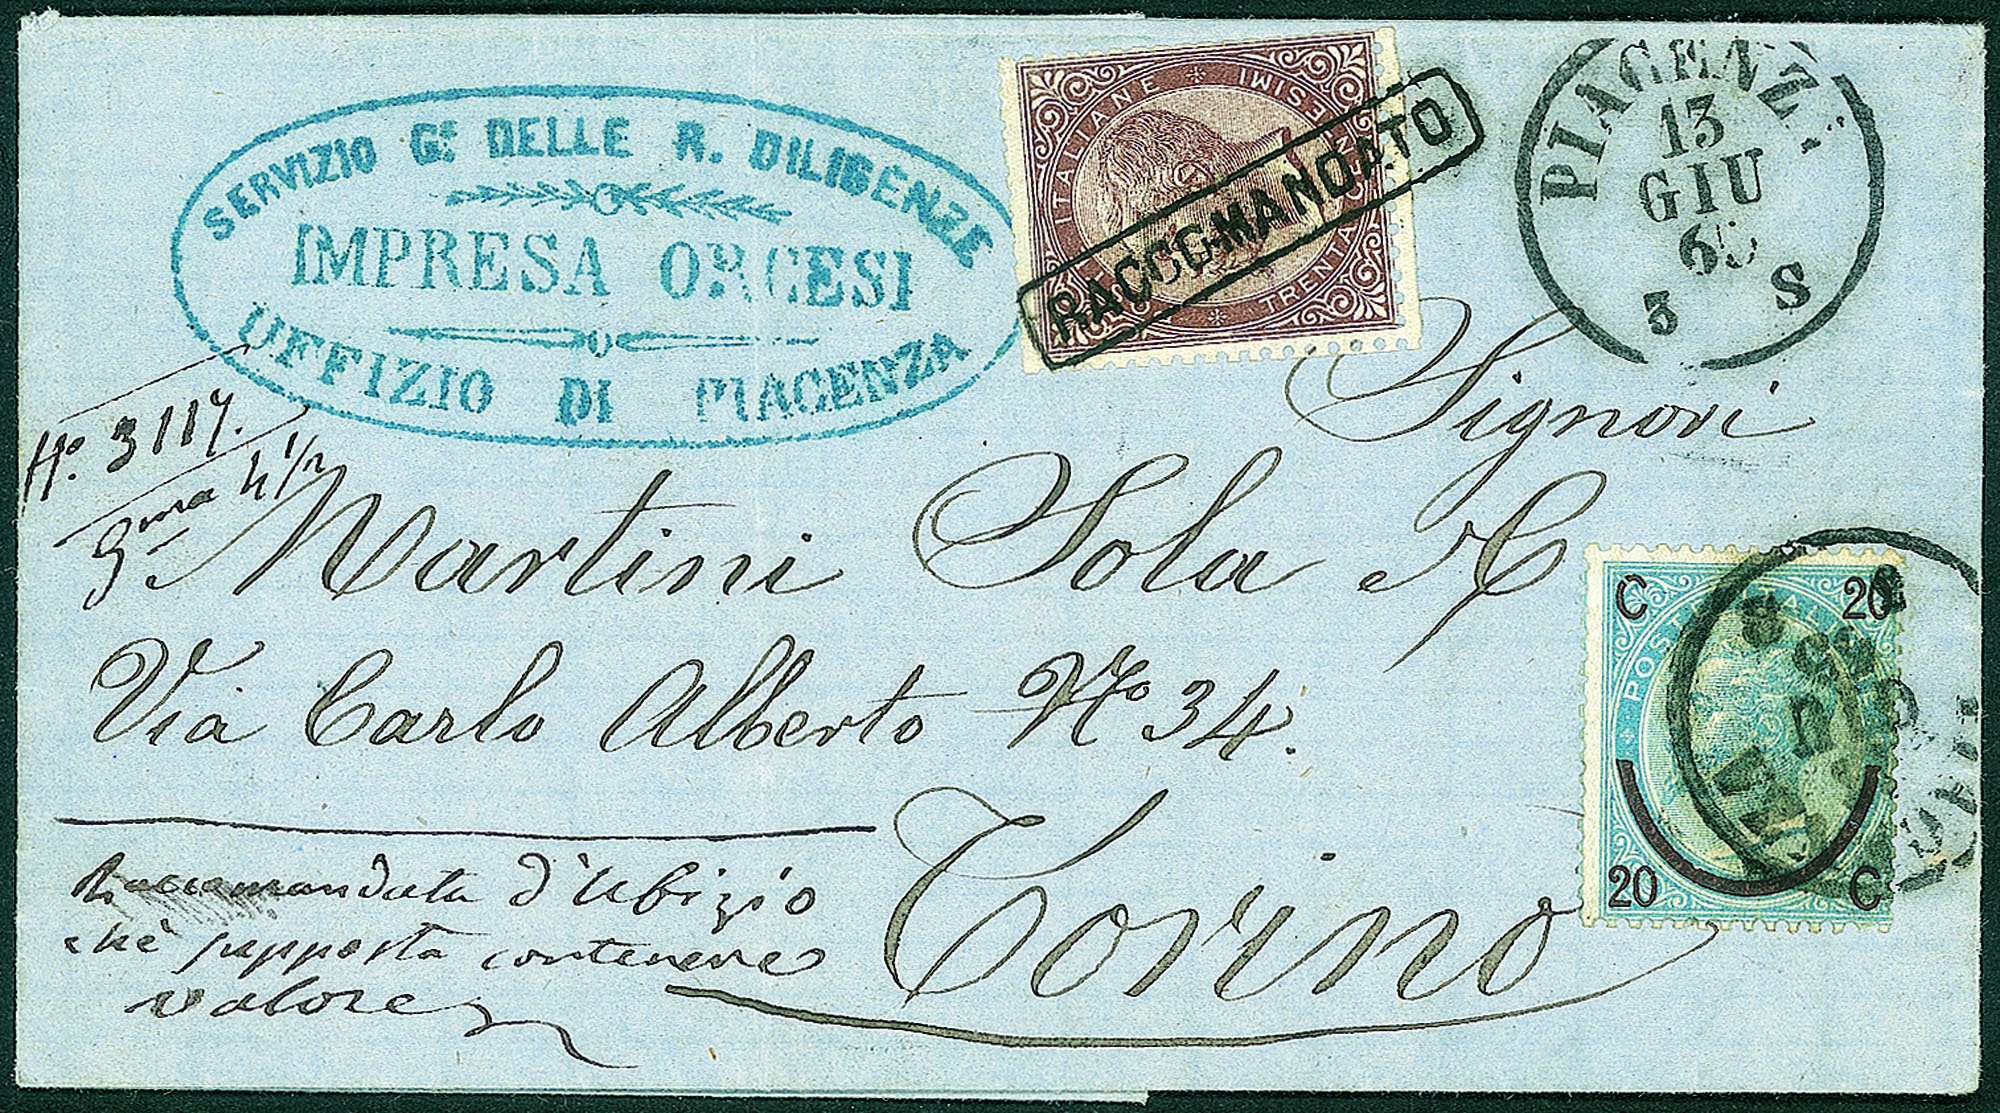 SERVIZIO Gᵉ DELLE R. DILIGENZE
IMPRESA ORCESI
UFFIZIO DI PIACENZA
POSTE ITALIANE
TRENTA CENTESIMI
RACCOMANDATO
PIACENZ
13
GIU
65
3 S
Nº. 3117.
gma 4 1/2
Signori
Martini Sola & C
Via Carlo Alberto Nº 34.
Torino
C 20
POST ITAL
20 C
Raccomandata d'Ufizio
chè supposta contenere
valore